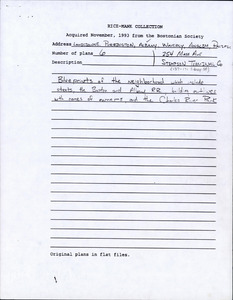 RICH-MANK COLLECTION
Acquired November, 1993 from the Bostonian Society
Address Albany
Number of plans 6 254 Mass Ave
Description Stadium Terminal Co
Blueprints of the neighborhood which include
streets, the Boston and Albany RR, building outlines
with names of owners and the Charles River Park
Original plans in flat files.